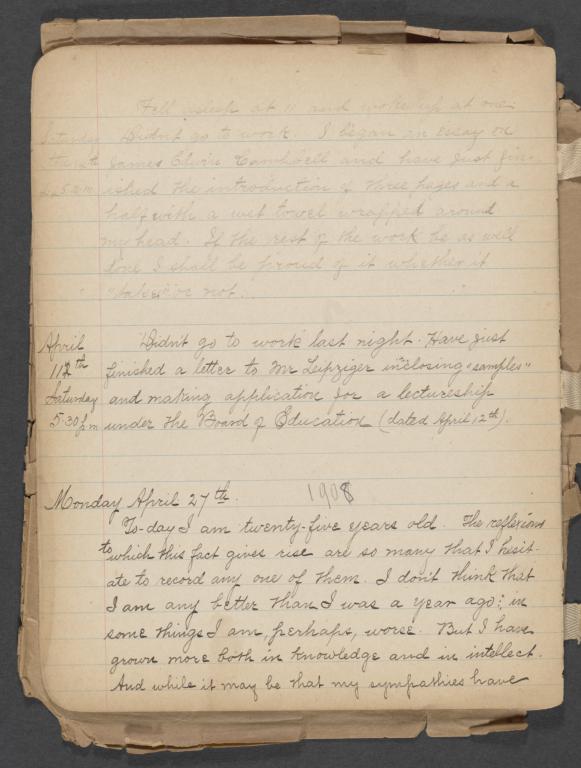 Fell asleep at 11 and woke up at one.
Saturday Didn't go to work. I began an essay on
James Edwin Campbell and have just fin-
ished the introduction of three pages and a
half with a wet towel wrapped around
my head. If the rest of the work be as well
done I shall be proud of it whether it
"takes" or not.
April Didn't go to work last night. Have just
11th finished a letter to Mr Leipziger inclosing "samples"
Saturday and making application for a lectureship
5.30 pm under the Board of Education (dated April 12th).
Monday April 27th. 1908
To-day I am twenty-five years old. The reflexions
to which this fact gives rise are so many that I hesit-
ate to record any one of them. I don't think that
I am any better than I was a year ago; in
some things I am, perhaps, worse. But I have
grown more both in knowledge and in intellect.
And while it may be that my sympathies have